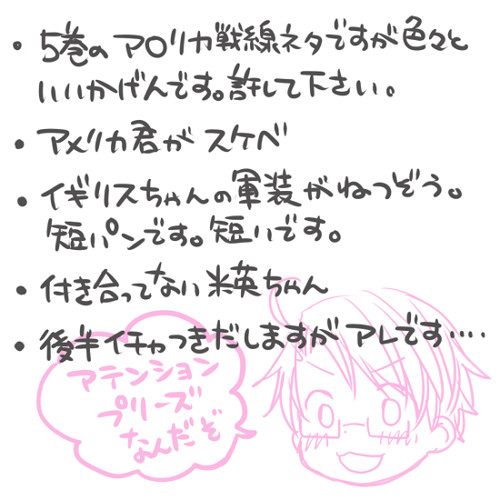 ・5巻のアロリカ戦線ネタですが色々と
いいかげんです。許して下さい。
・アメリカ君がスケベ
・イギリスちゃんの軍装がねつぞう。
短パンです。短いです。
・付き合ってない米英ちゃん
・後半イチャつきだしますがアレです‥‥
アテンション
プリーズ
なんだぞ